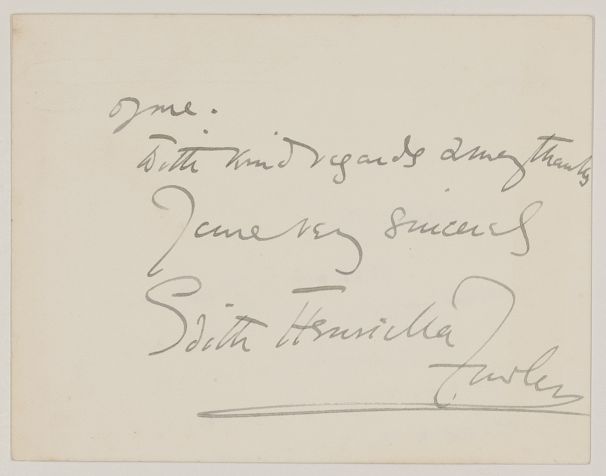 of me.
With kind regards & many thanks
Yours very sincerely
Edith Henrietta
Fowler